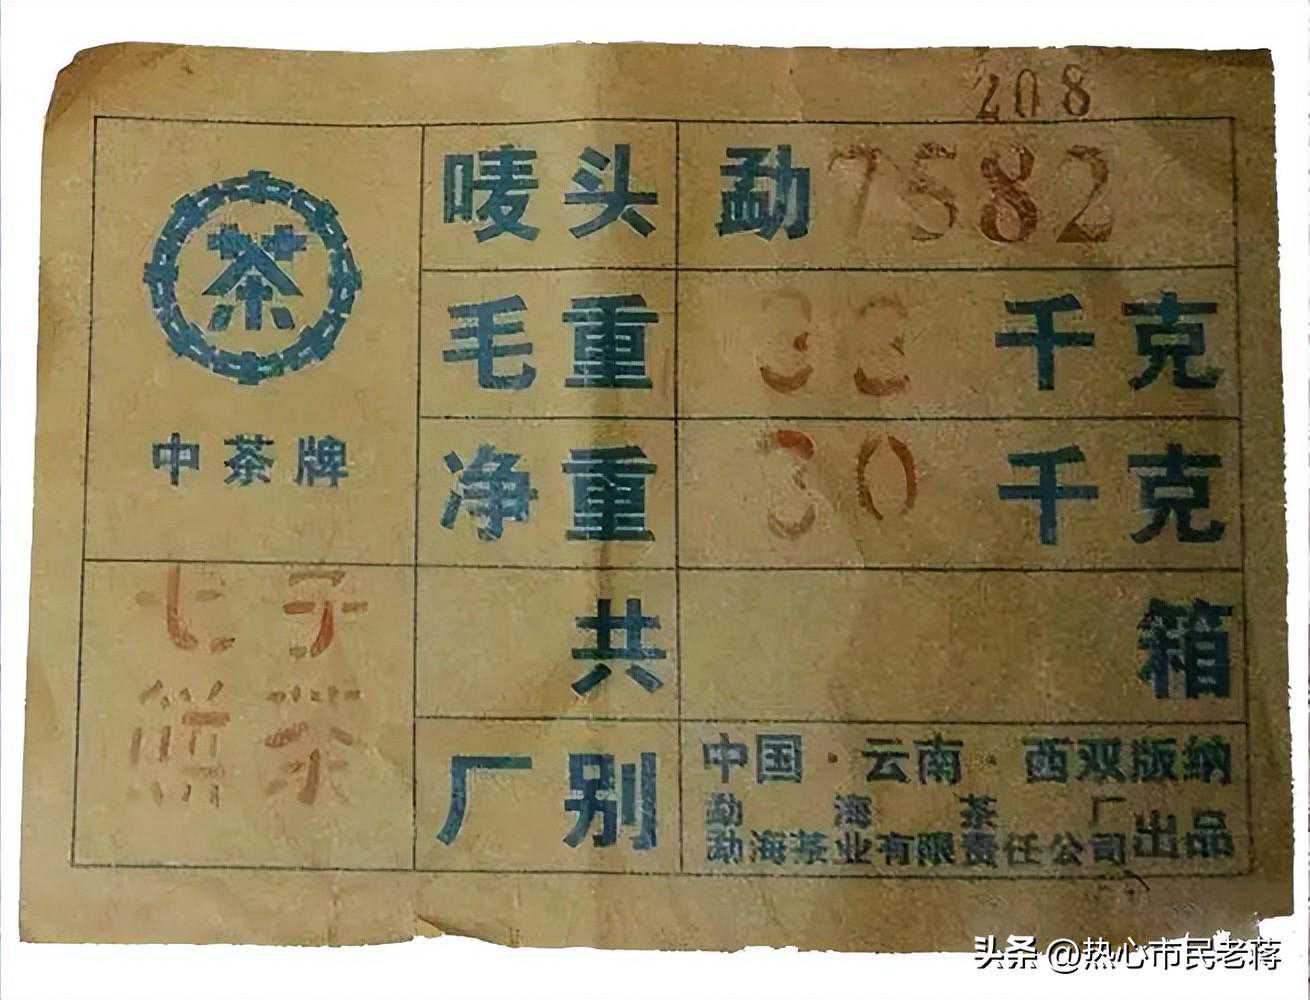 208
茶
中茶牌
七子
饼茶
唛头 勐7582
毛重 33 千克
净重 30 千克
共 箱
厂别 中国·云南·西双版纳
勐海茶厂
勐海茶业有限责任公司 出品
头条 @热心市民老蒋